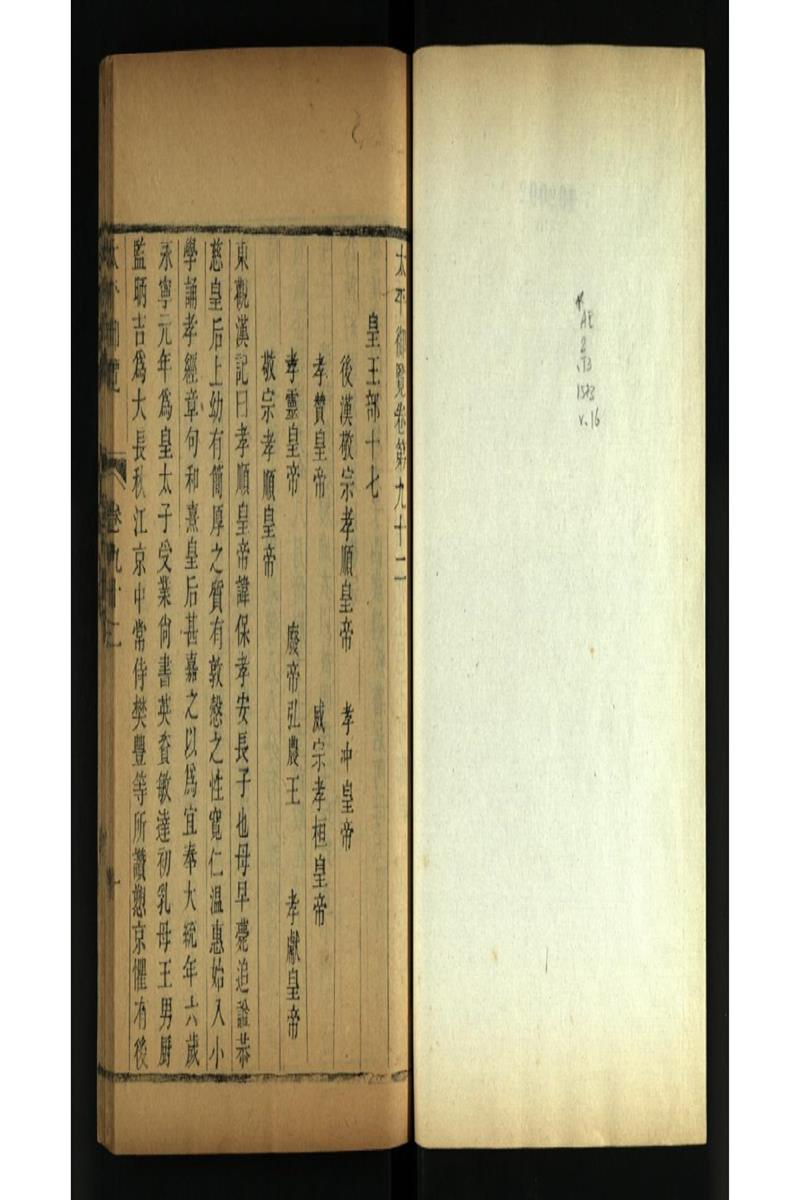 太平御覽卷第九十二
皇王部十七
後漢敬宗孝順皇帝 孝冲皇帝
孝贊皇帝 威宗孝桓皇帝
孝靈皇帝 廢帝弘農王 孝獻皇帝
敬宗孝順皇帝
東觀漢記曰孝順皇帝諱保孝安長子也母早薨追諡恭
慈皇后上幼有簡厚之質有敦慤之性寬仁温惠始入小
學誦孝經章句和熹皇后甚嘉之以爲宜奉大統年六歲
永寧元年爲皇太子受業尚書英資敏達初乳母王男厨
監邴吉爲大長秋江京中常侍樊豐等所讚愬京懼有後
太平御覽 卷九十二 一
AE
2
.T3
1573
v.16